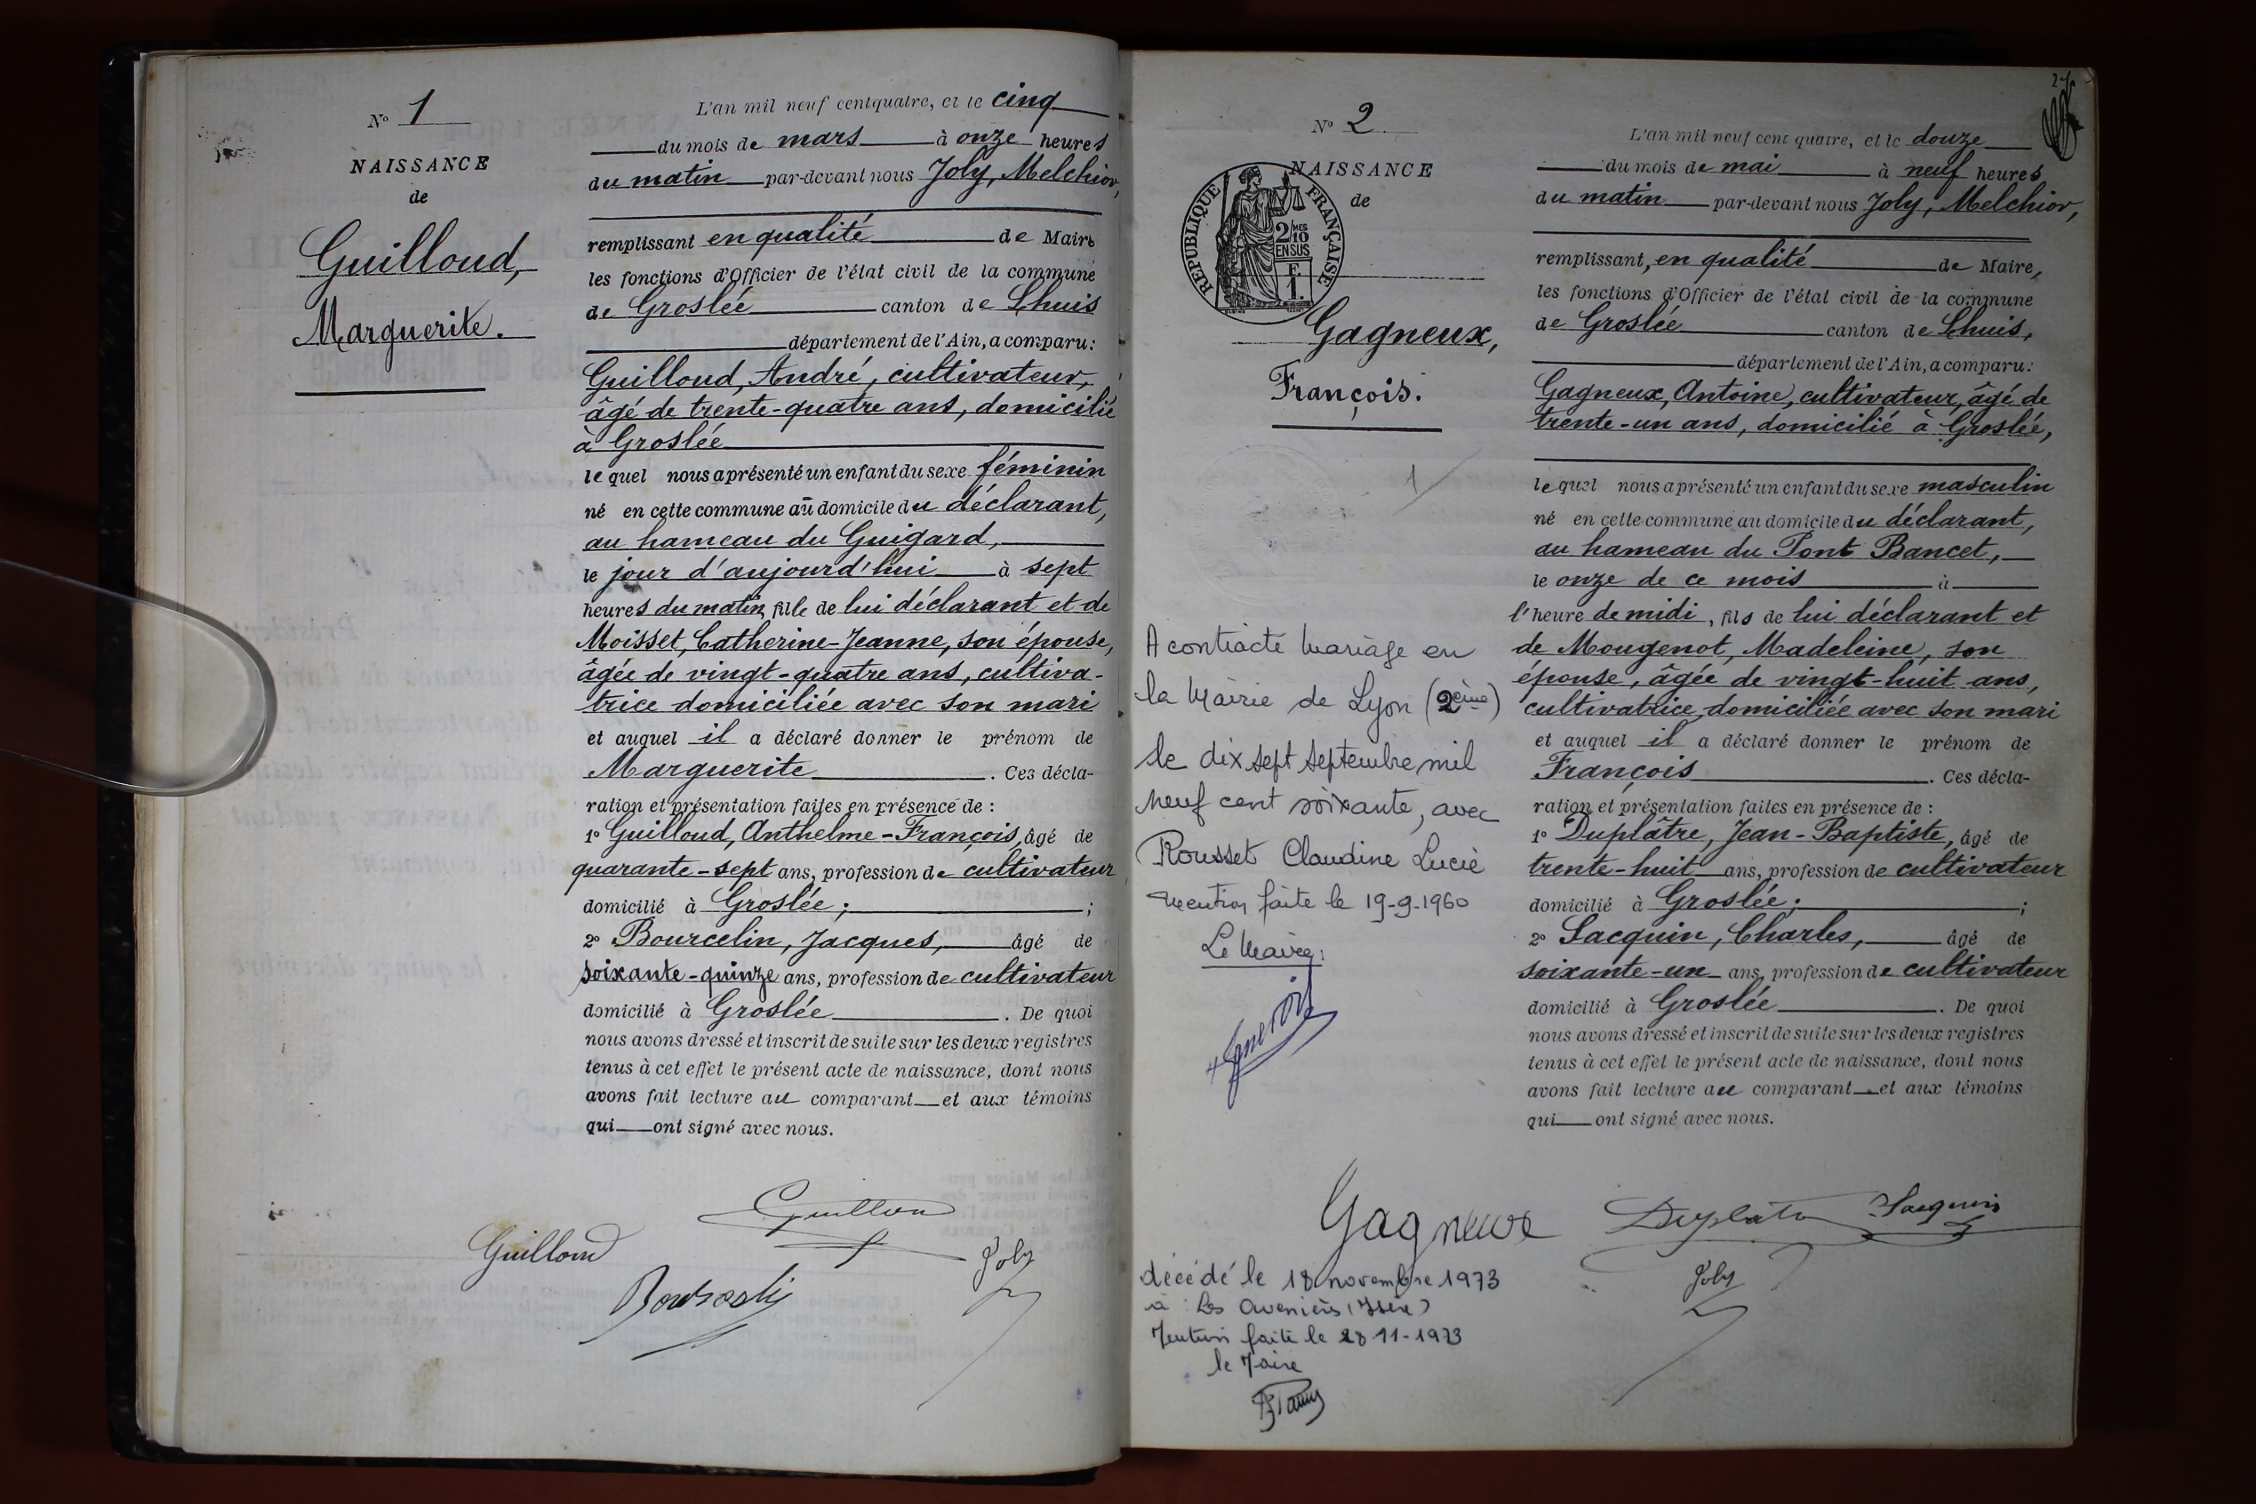 N° 1
NAISSANCE
de
Guilloud,
Marguerite.
L'an mil neuf cent quatre, et le cinq
du mois de mars à onze heures
du matin par-devant nous Joly, Melchior,
remplissant en qualité de Maire
les fonctions d'Officier de l'état civil de la commune
de Groslée canton de Lhuis
département de l'Ain, a comparu:
Guilloud, André, cultivateur,
âgé de trente-quatre ans, domicilié
à Groslée
lequel nous a présenté un enfant du sexe féminin
né en cette commune au domicile du déclarant,
au hameau du Guigard,
le jour d'aujourd'hui à sept
heures du matin, fille de lui déclarant et de
Moisset, Catherine-Jeanne, son épouse,
âgée de vingt-quatre ans, cultiva-
trice domiciliée avec son mari
et auquel il a déclaré donner le prénom de
Marguerite. Ces décla-
ration et présentation faites en présence de :
1° Guilloud, Anthelme-François, âgé de
quarante-sept ans, profession de cultivateur
domicilié à Groslée; ;
2° Bourcelin, Jacques, âgé de
soixante-quinze ans, profession de cultivateur
domicilié à Groslée. De quoi
nous avons dressé et inscrit de suite sur les deux registres
tenus à cet effet le présent acte de naissance, dont nous
avons fait lecture au comparant et aux témoins
qui ont signé avec nous.
Guilloud
Guilloud
Joly
N° 2
NAISSANCE
de
REPUBLIQUE FRANÇAISE
2/10 MES
EN SUS
F.
1.
Gagneux,
François.
1
A contracté mariage en
la Mairie de Lyon (2ème)
le dix sept septembre mil
neuf cent soixante, avec
Rousset Claudine Lucie
Mention faite le 19-9-1960
Le Maire:
L'an mil neuf cent quatre, et le douze
du mois de mai à neuf heures
du matin par-devant nous Joly, Melchior,
remplissant, en qualité de Maire,
les fonctions d'Officier de l'état civil de la commune
de Groslée canton de Lhuis,
département de l'Ain, a comparu:
Gagneux, Antoine, cultivateur, âgé de
trente-un ans, domicilié à Groslée,
lequel nous a présenté un enfant du sexe masculin
né en cette commune au domicile du déclarant,
au hameau du Pont Bancet,
le onze de ce mois à
l'heure de midi, fils de lui déclarant et
de Mougenot, Madeleine, son
épouse, âgée de vingt-huit ans,
cultivatrice domiciliée avec son mari
et auquel il a déclaré donner le prénom de
François. Ces décla-
ration et présentation faites en présence de :
1° Duplâtre, Jean-Baptiste, âgé de
trente-huit ans, profession de cultivateur
domicilié à Groslée; ;
2° Sacquin, Charles, âgé de
soixante-un ans, profession de cultivateur
domicilié à Groslée. De quoi
nous avons dressé et inscrit de suite sur les deux registres
tenus à cet effet le présent acte de naissance, dont nous
avons fait lecture au comparant et aux témoins
qui ont signé avec nous.
Gagneux
Duplatre
Sacquin
Joly
décédé le 18 novembre 1973
à : Les Avenières (Isère)
Mention faite le 28-11-1973
le Maire